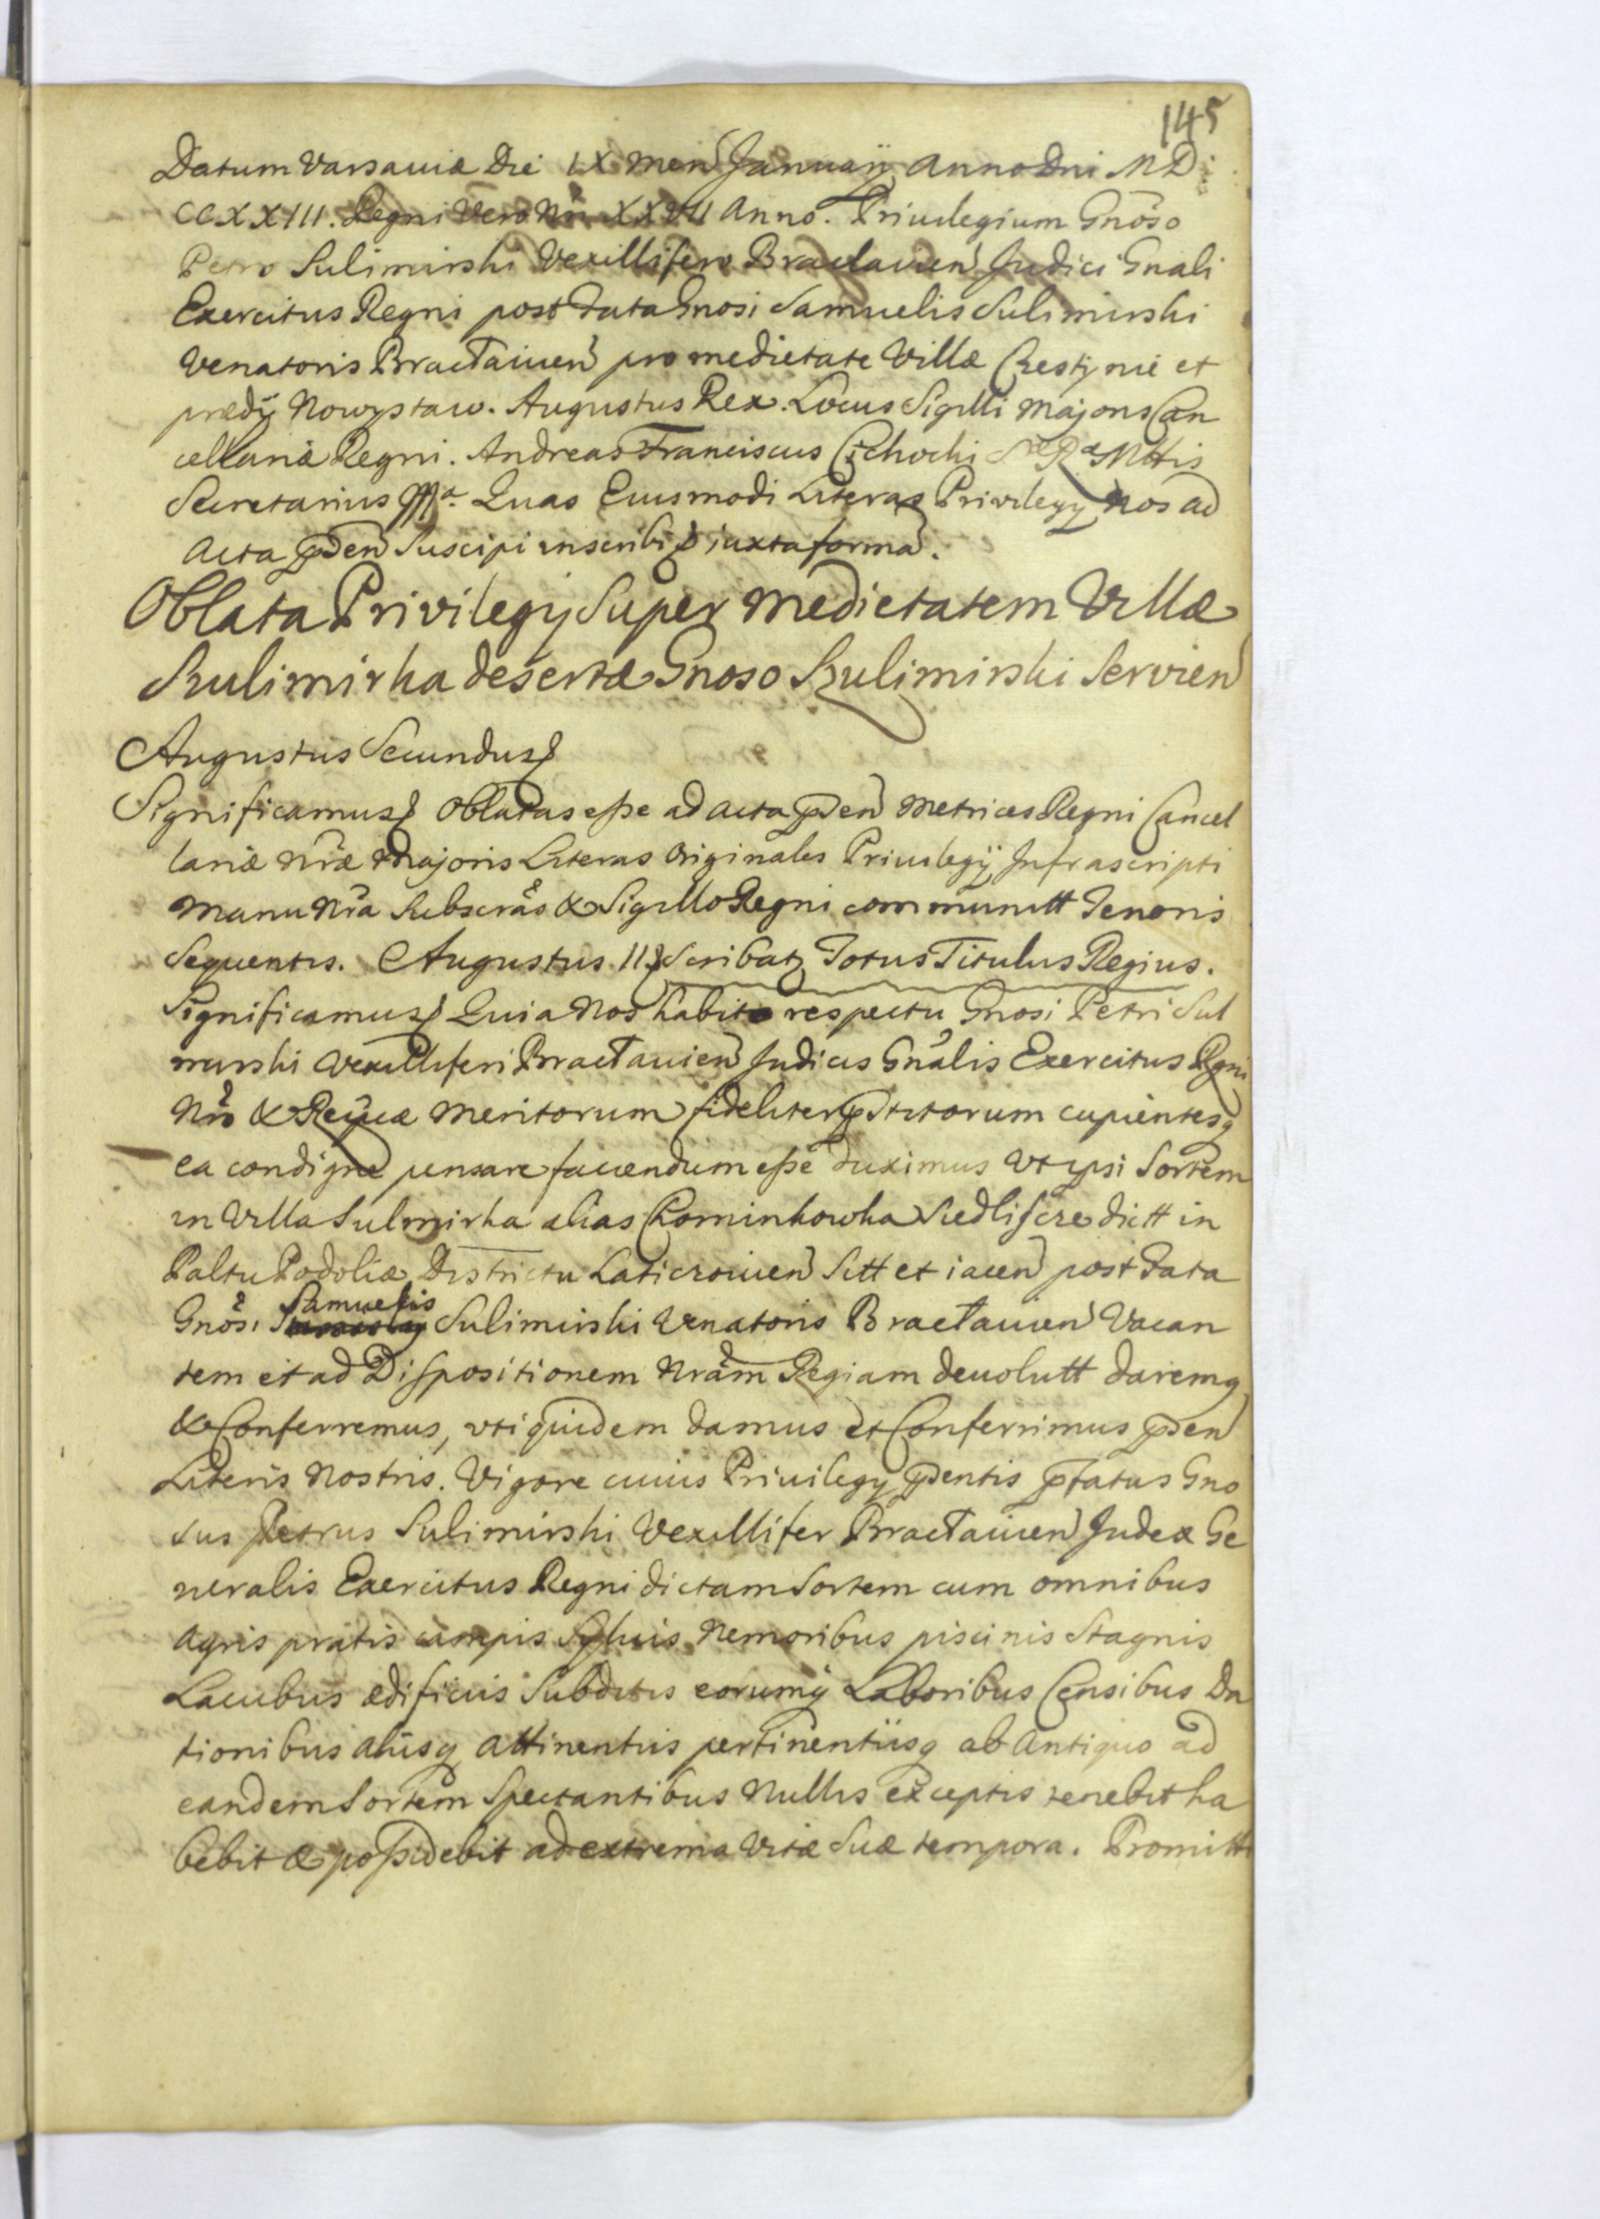 145
Datum Varsaviæ Die IX Men Januarij Anno Dni MD
CCXXIII. Regni Vero Nri XXVII Anno. Priuilegium Gnoso
Petro Sulimirski Vexillifero Braclauien Judici Gnali
Exercitus Regni post Fata Gnosi Samuelis Sulimirski
Venatoris Bracłauien pro medietate Villæ et
prædij Nowystaw. Augustus Rex. Locus Sigilli Majoris Can
cellariæ Regni. Andreas Franciscus Cichocki S R Mttis
Secretarius Quas Eiusmodi Literas Privilegij Nos ad
Acta pden Suscipi inscribi iuxta forma.
Oblata Privilegij Super Medietatem Villæ
Szulimirka desertæ Gnoso Szulimirski Servien
Augustus Secundus
Significamus Oblatas esse ad acta pden Metrices Regni Cancel
lariæ Nræ Majoris Literas Originales Priuilegij Infrascripti
Manu Nra Subscras & Sigillo Regni communitt Tenoris
Sequentis. Augustus II Scribatz Totus Titulus Regius.
Significamus Quia Nos habito respectu Gnosi Petri Sul
mirski Vexilliferi Bracłauien Judicis Gnalis Exercitus Rgni
Nri & Reiucæ Meritorum fideliter pstitorum cupientesq
ea condigne pensare faciendum esse duximus Vt ipsi Sortem
in Villa Sulmirka alias Kominkowka Siedliscze dictt in
Paltu Podoliæ Districtu Laticzouien Sitt et iacen post Fata
Gnosi Samuelis Sulimirski Venatoris Bracłauien Vacan
tem et ad Dispositionem Nram Regiam deuolutt daremq
& Conferremus, vti quidem damus et Conferrimus pden
Literis Nostris. Vigore cuius Priuilegij pdentis pfatus Gno
sus Petrus Sulimirski Vexillifer Bracłauien Judex Ge
neralis Exercitus Regni dictam Sortem cum omnibus
Agris pratis campis Syluis Nemoribus piscinis Stagnis
Lacubus ædificiis Subditis eorumq Laboribus Censibus Da
tionibus aliisq attinentiis pertinentiisq ab Antiquo ad
eandem Sortem Spectantibus Nullis exceptis tenebit ha
bebit & possidebit ad extrema Vitæ Suæ tempora. Promitti